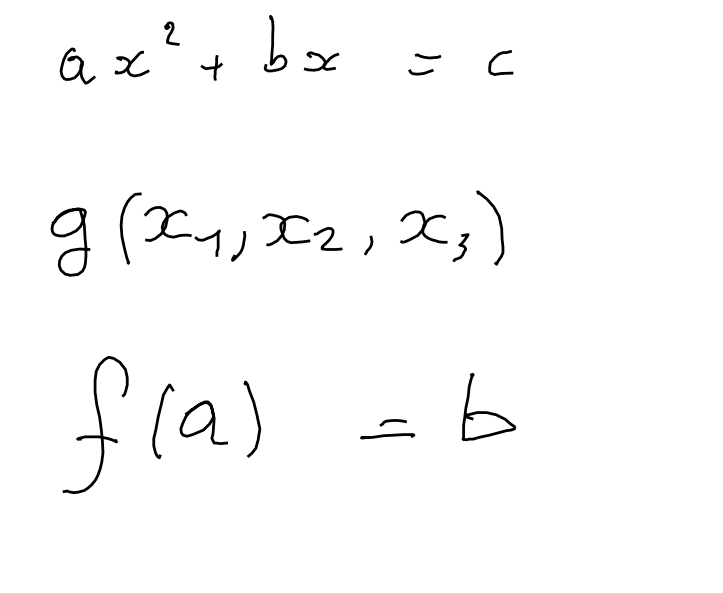 ax² + bx = c
g(x₁, x₂, x₃)
f(a) = b